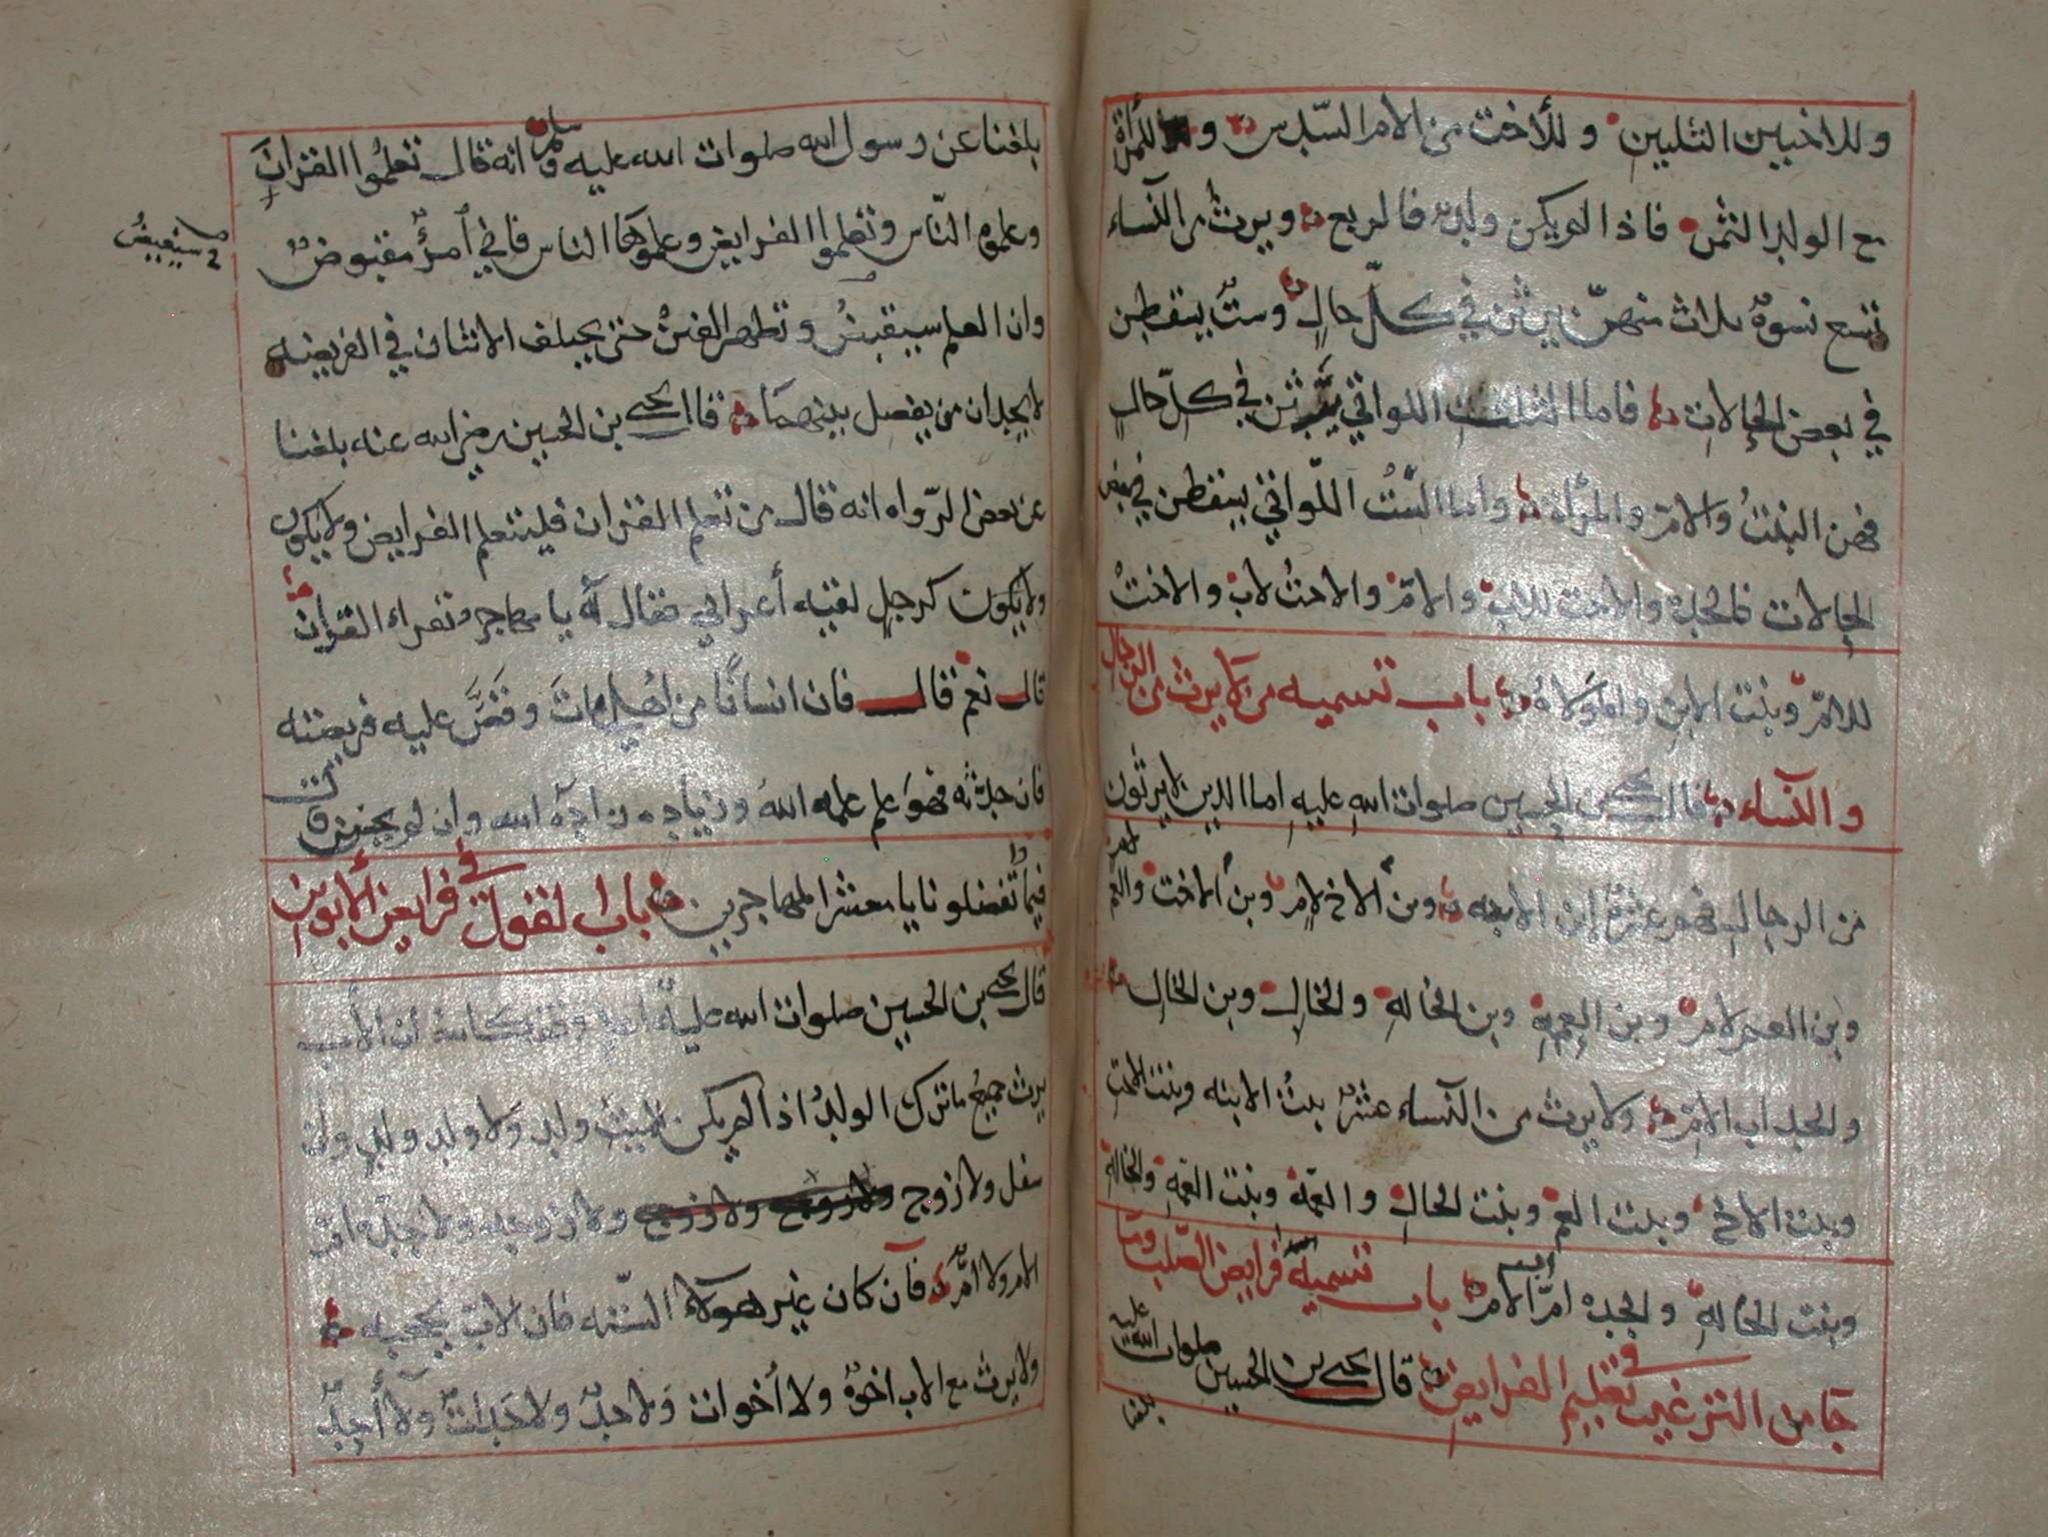 وللاختين الثلثين وللأخت من الأم السّدس وللمرأة
مع الولد الثمن فاذا لم يكن ولد فالربع ويرث من النساء
تسع نسوة ثلاث منهنّ يرثن في كلّ حالٍ وستٌ يسقطن
في بعض الحالات فاما الثلث اللواتي يرثن في كلّ حالٍ
فهن البنتُ والام والمرأة واما الستُ اللّواتي يسقطن في بعض
الحالات فالجدة والاخت للاب والامّ والاختُ لاب والاختُ
للامّ وبنت الابن والمولاة باب تسميه من لا يرث من الرجال
والنساء قال يحيى بن الحسين صلوات اللهِ عليهِ اما الذين لا يرثون
من الرجالِ فهم عشرةٌ ابن الابنه وبن الأخ لامٍ وبن الاخت والعم لام
وبن العم لام وبن العمةِ وبن الخالةِ والخالِ وبن الخالِ
والجد اب الام ولا يرث من النساء عشرٌ بنتُ الابنه وبنت الاخت
وبنت الاخ وبنت العم وبنت الخال والعمّة وبنت العمّة والخالة
وبنت الخالةِ والجده امّ اب الام باب تسمية فرايض الصّلب وما
جا من الترغيب في تعليم الفرايض قال يحيى بن الحسين صلوات الله عليه
بلغنا
بلغنا عن رسول الله صلوات الله عليه وسلم انه قال تعلمُوا القرانَ
وعلموه النّاس وتعلموا الفرايض وعلموها الناس فاني امرؤٌ مقبوضٌ
سيقبضُ
وان العلم سيقبضُ وتظهر الفتنُ حتى يختلف الاثنان في الفريضه
لا يجدان من يفصل بينهمَا قال يحيى بن الحسين رضي الله عنه بلغنا
عن بعض الرّواه انه قال من تعلم القران فليتعلم الفرايض ولا يكون
ولا يكون كرجلٍ لقيه أعرابي فقال لهُ يا مهاجر تقراء القرانَ
قال نعم قال فان انسانًا من اهلي ماتَ وقصَّ عليه فريضته
فان حدثه فهوَ علم علمه اللهُ وزياده زاده الله وان لم يحسن قال
فبمَ تفضلونا يا معشر المهاجرين باب القول في فرايض الأبوين
قال يحيى بن الحسين صلوات الله عليهُ أن الأب
يرث جميعُ ما ترك الولدُ اذا لم يكن للميت ولد ولا ولد ولدٍ وان
سفل ولا زوج ولا زوجه ولا جدة ام
الام ولا امٌّ فان كان غير هولاء السته فان الابَ يحجبه
ولا يرث مع الاب اخوةٌ ولا أخوات ولا جدٌ ولا جَداتٌ ولا أحدٌ